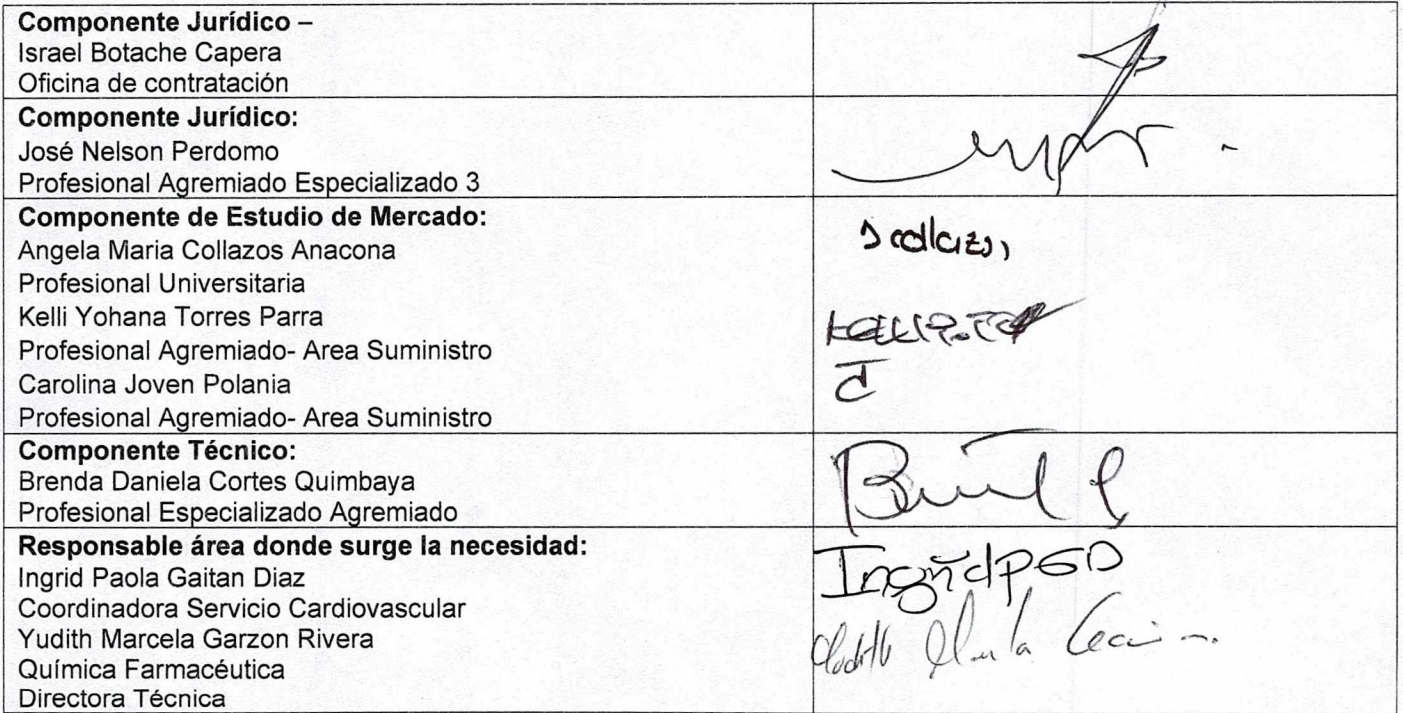 Componente Jurídico –
Israel Botache Capera
Oficina de contratación
Componente Jurídico:
José Nelson Perdomo
Profesional Agremiado Especializado 3
Componente de Estudio de Mercado:
Angela Maria Collazos Anacona
Profesional Universitaria
Kelli Yohana Torres Parra
Profesional Agremiado- Area Suministro
Carolina Joven Polania
Profesional Agremiado- Area Suministro
Componente Técnico:
Brenda Daniela Cortes Quimbaya
Profesional Especializado Agremiado
Responsable área donde surge la necesidad:
Ingrid Paola Gaitan Diaz
IngridPGD
Coordinadora Servicio Cardiovascular
Yudith Marcela Garzon Rivera
Química Farmacéutica
Directora Técnica